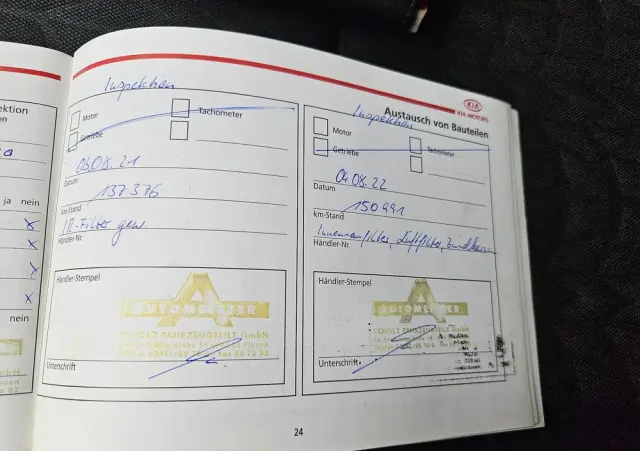 ektion
en
ja nein
nein
Inspektion
Motor
Tachometer
Getriebe
03.08.21
Datum
137376
km-Stand
IR-Filter gew.
Händler-Nr.
Händler-Stempel
AUTOMEISTER
SCHOLZ FAHRZEUGTEILE GmbH
Unterschrift
KIA
KIA MOTORS
Austausch von Bauteilen
Inspektion
Motor
Getriebe
Tachometer
04.08.22
Datum
150491
km-Stand
Innenraumfilter, Luftfilter, Zündkerzen
Händler-Nr.
Händler-Stempel
AUTOMEISTER
SCHOLZ FAHRZEUGTEILE GmbH
Unterschrift
24